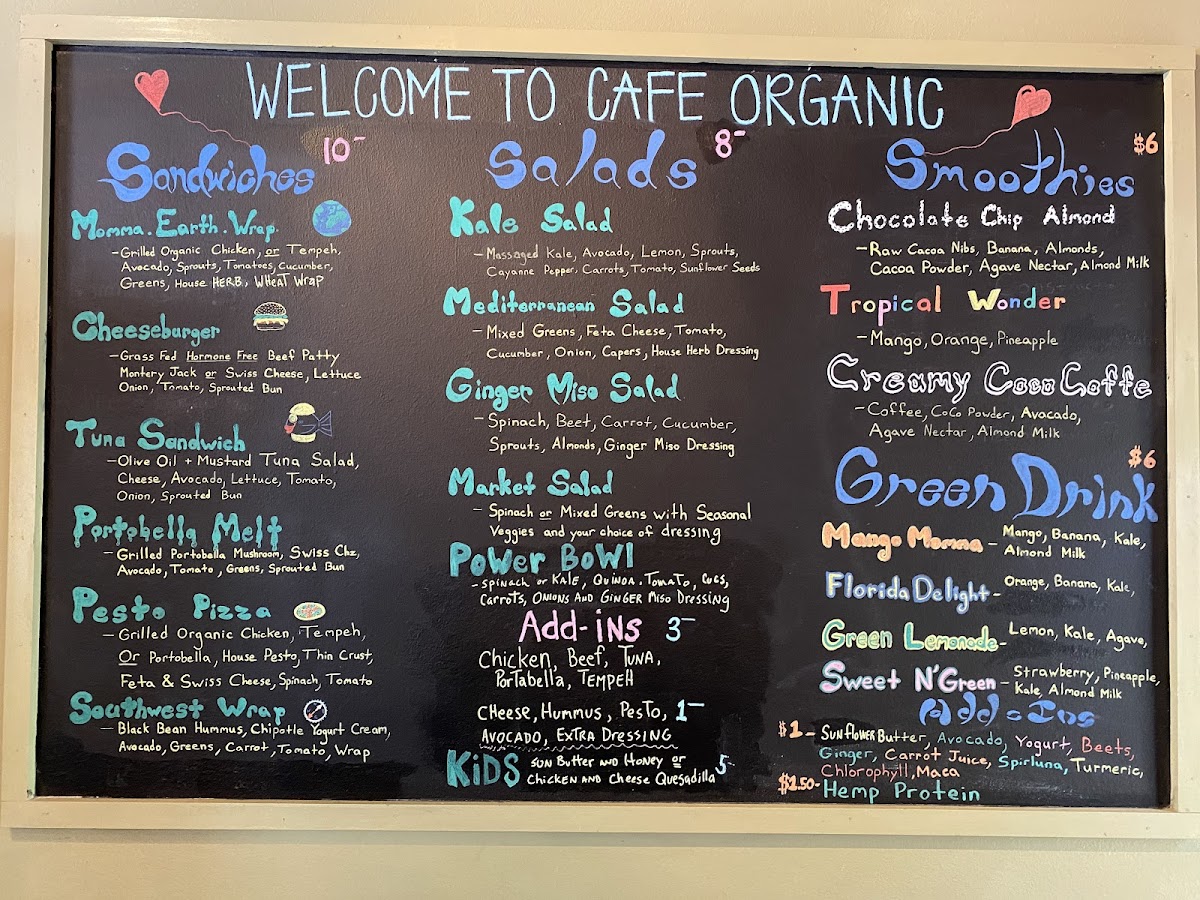 WELCOME TO CAFE ORGANIC
Sandwiches 10-
Momma. Earth. Wrap.
- Grilled Organic Chicken, or Tempeh,
Avocado, Sprouts, Tomatoes, Cucumber,
Greens, House HERB, WHEAT Wrap
Cheeseburger
- Grass Fed Hormone Free Beef Patty
Montery Jack or Swiss Cheese, Lettuce
Onion, Tomato, Sprouted Bun
Tuna Sandwich
- Olive Oil + Mustard Tuna Salad,
Cheese, Avocado, Lettuce, Tomato,
Onion, Sprouted Bun
Portobella Melt
- Grilled Portobella Mushroom, Swiss Chz,
Avocado, Tomato, Greens, Sprouted Bun
Pesto Pizza
- Grilled Organic Chicken, Tempeh,
Or Portobella, House Pesto, Thin Crust,
Feta & Swiss Cheese, Spinach, Tomato
Southwest Wrap
- Black Bean Hummus, Chipotle Yogurt Cream,
Avocado, Greens, Carrot, Tomato, Wrap
Salads 8-
Kale Salad
- Massaged Kale, Avocado, Lemon, Sprouts,
Cayanne Pepper, Carrots, Tomato, Sunflower Seeds
Mediterranean Salad
- Mixed Greens, Feta Cheese, Tomato,
Cucumber, Onion, Capers, House Herb Dressing
Ginger Miso Salad
- Spinach, Beet, Carrot, Cucumber,
Sprouts, Almonds, Ginger Miso Dressing
Market Salad
- Spinach or Mixed Greens with Seasonal
Veggies and your choice of dressing
Power Bowl
- Spinach or Kale, Quinoa. Tomato, Cucs,
Carrots, Onions and Ginger Miso Dressing
Add-ins 3-
Chicken, Beef, Tuna,
Portabella, TEMPEH
Cheese, Hummus, Pesto, 1-
Avocado, Extra Dressing
KiDS Sun Butter and Honey or
Chicken and Cheese Quesadilla 5-
Smoothies $6
Chocolate Chip Almond
- Raw Cacoa Nibs, Banana, Almonds,
Cacoa Powder, Agave Nectar, Almond Milk
Tropical Wonder
- Mango, Orange, Pineapple
Creamy Coco Coffe
- Coffee, CoCo Powder, Avocado,
Agave Nectar, Almond Milk
Green Drink $6
Mango Momma - Mango, Banana, Kale,
Almond Milk
Florida Delight - Orange, Banana, Kale,
Green Lemonade - Lemon, Kale, Agave,
Sweet N'Green - Strawberry, Pineapple,
Kale, Almond Milk
Add-Ins
$1- Sunflower Butter, Avocado, Yogurt, Beets,
Ginger, Carrot Juice, Spirluna, Turmeric,
Chlorophyll, Maca
$1.50- Hemp Protein